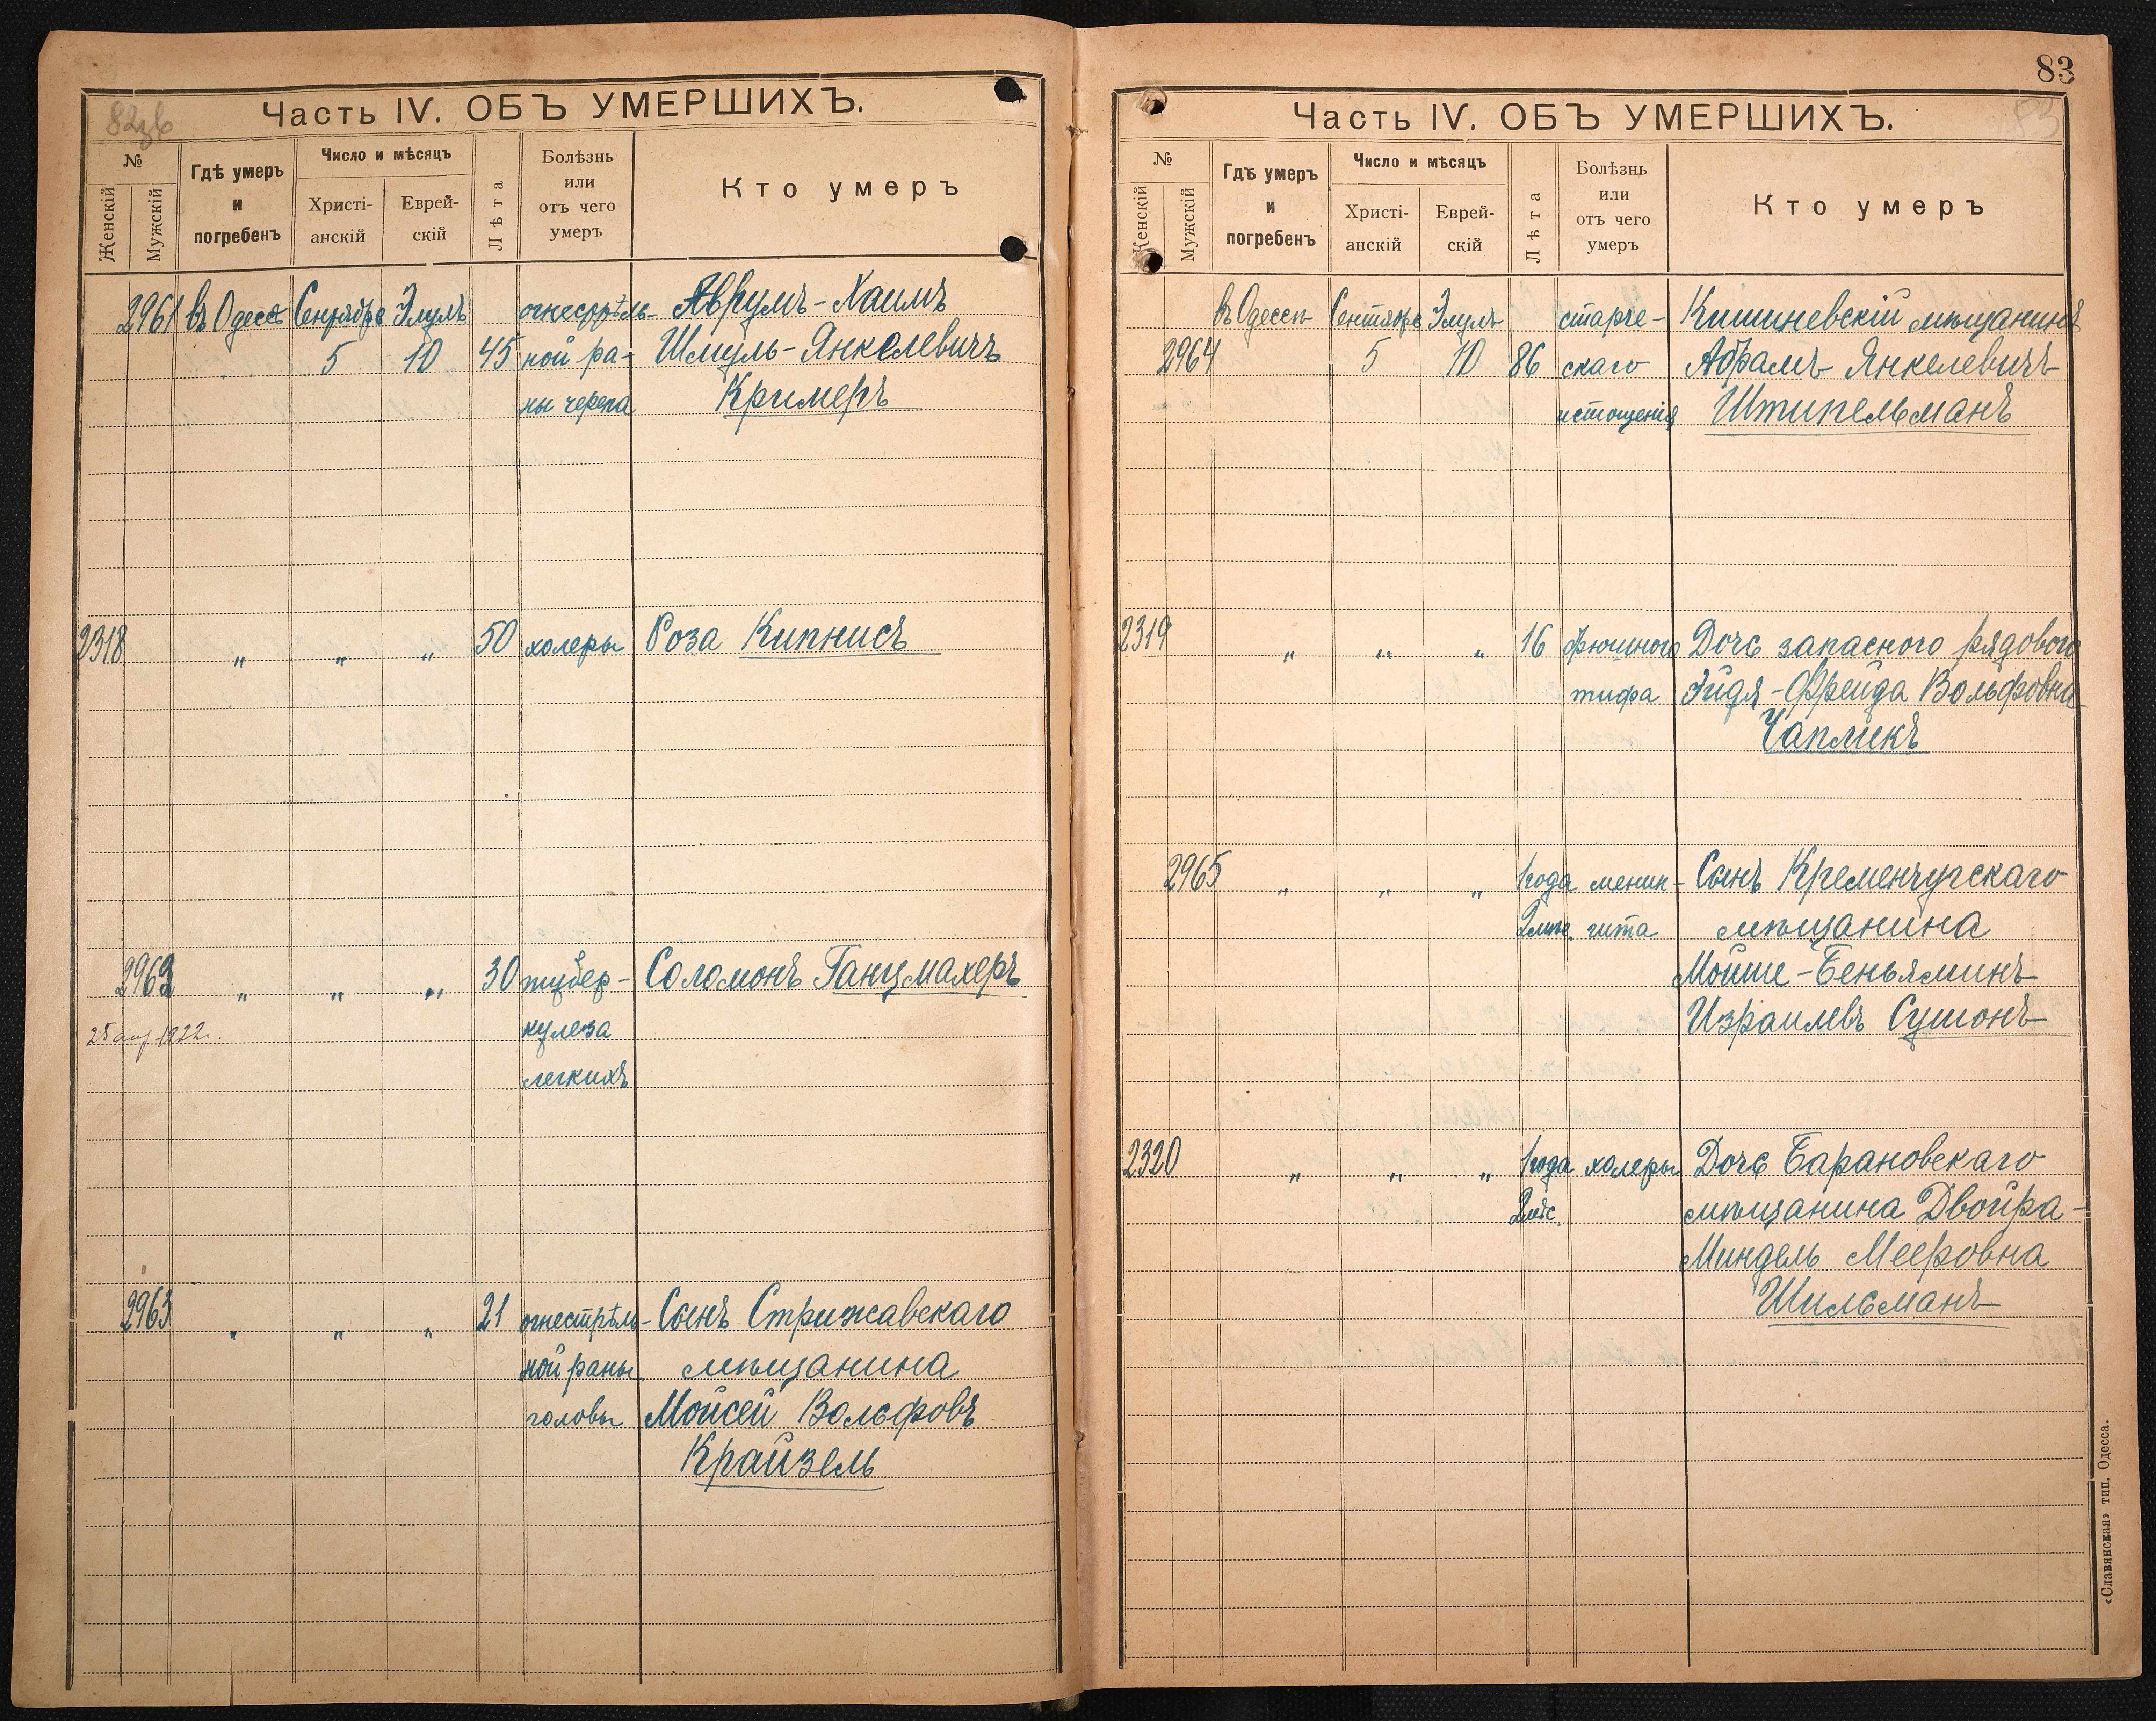 82зв
Часть IV. ОБЪ УМЕРШИХЪ.
№
Женскій
Мужскій
Гдѣ умеръ
и
погребенъ
Число и мѣсяцъ
Христі-
анскій
Еврей-
скій
Лѣта
Болѣзнь
или
отъ чего
умеръ
Кто умеръ
2961 въ Одессѣ Сентябрь Элулъ огнестрѣль- Аврумъ-Хаимъ
5 10 45 ной ра- Шмуль-Янкелевичъ
ны черепа Кримеръ
2318 " " " 50 холеры Роза Кипнисъ
2962 " " " 30 тубер- Соломонъ Ганцмахеръ
25 1922г. кулеза
легкихъ
2963 " " " 21 огнестрѣль- Сынъ Стрижавскаго
ной раны мѣщанина
головы Мойсей Вольфовъ
Крайзель
83
83
Часть IV. ОБЪ УМЕРШИХЪ.
№
Женскій
Мужскій
Гдѣ умеръ
и
погребенъ
Число и мѣсяцъ
Христі-
анскій
Еврей-
скій
Лѣта
Болѣзнь
или
отъ чего
умеръ
Кто умеръ
въ Одессѣ Сентябрь Элулъ старче- Кишиневскій мѣщанинъ
2964 5 10 86 скаго Абрамъ Янкелевичъ
истощенія Штипельманъ
2319 " " " 16 брюшного Дочь запасного рядового
тифа Эйдя-Фрейда Вольфовна
Чапликъ
2965 " " " 1 года менин- Сынъ Кременчугскаго
2 мѣс. гита мѣщанина
Мойше-Беньяминъ
Израилевъ Сушонъ
2320 " " " 1 года холеры Дочь Барановскаго
2 мѣс. мѣщанина Двойра-
Миндель Мееровна
Шильманъ
«Славянская» тип. Одесса.